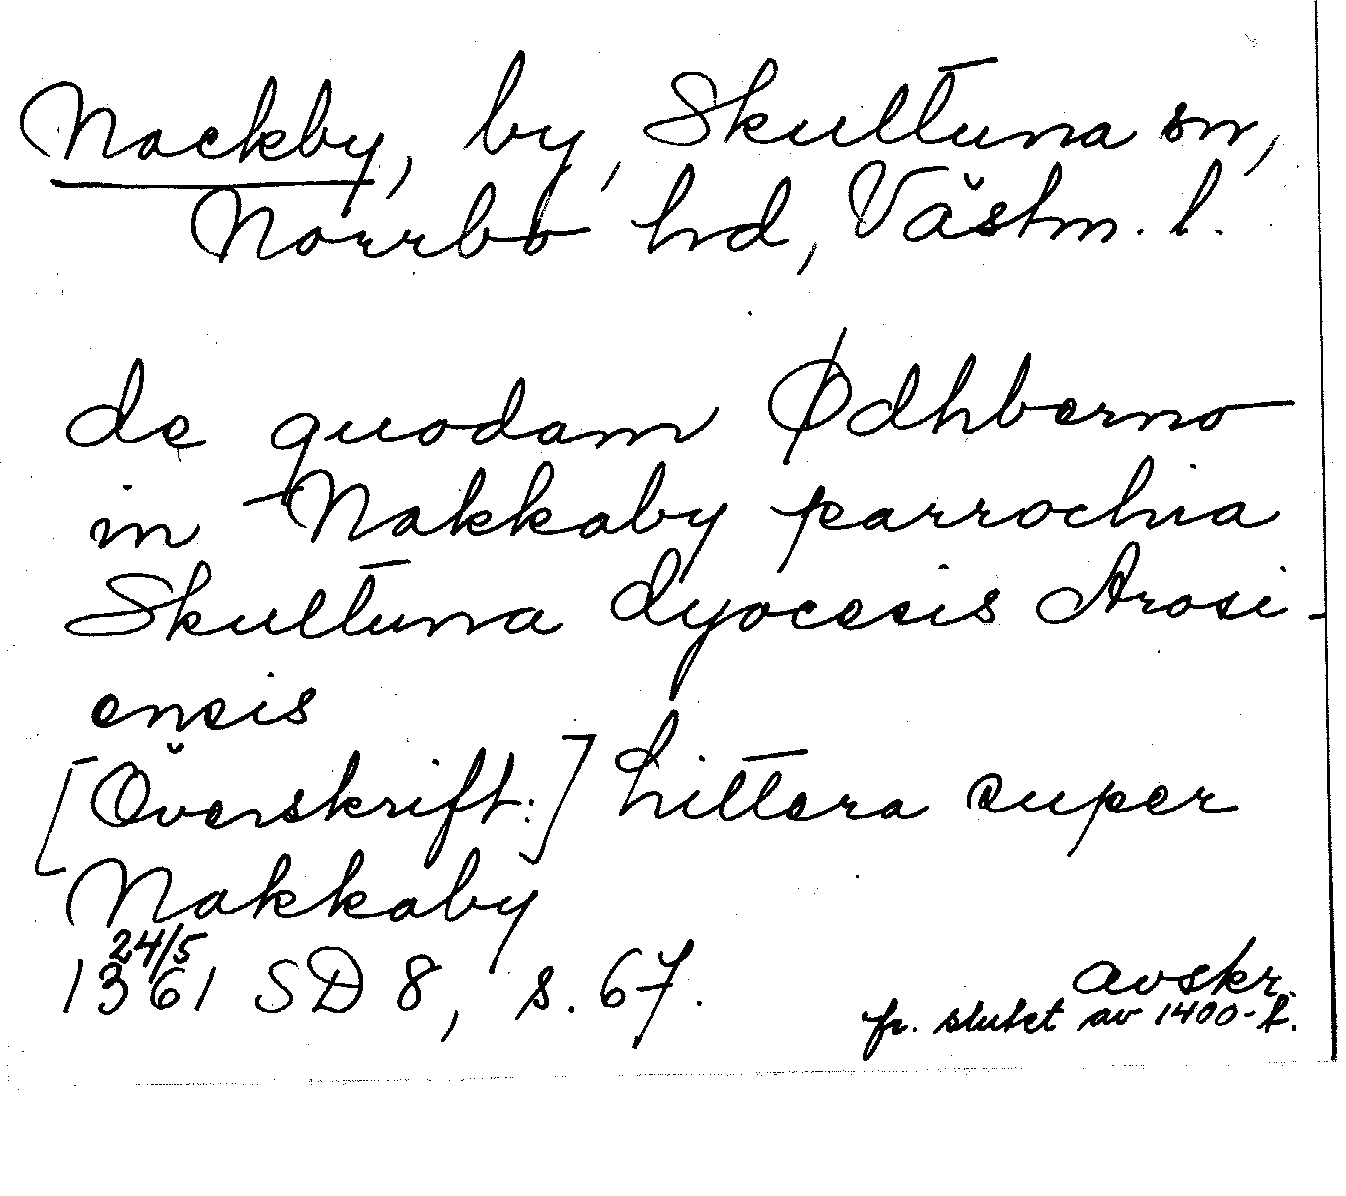 Nackby, by, Skultuna sn,
Norrbo hd, Västm. l.
de quodam Ødhberno
in Nakkaby parrochia
Skultuna dyocesis Arosi-
ensis
[Överskrift:] Littera super
Nakkaby
24/5
1361 SD 8, s. 67.
avskr.
fr. slutet av 1400-t.